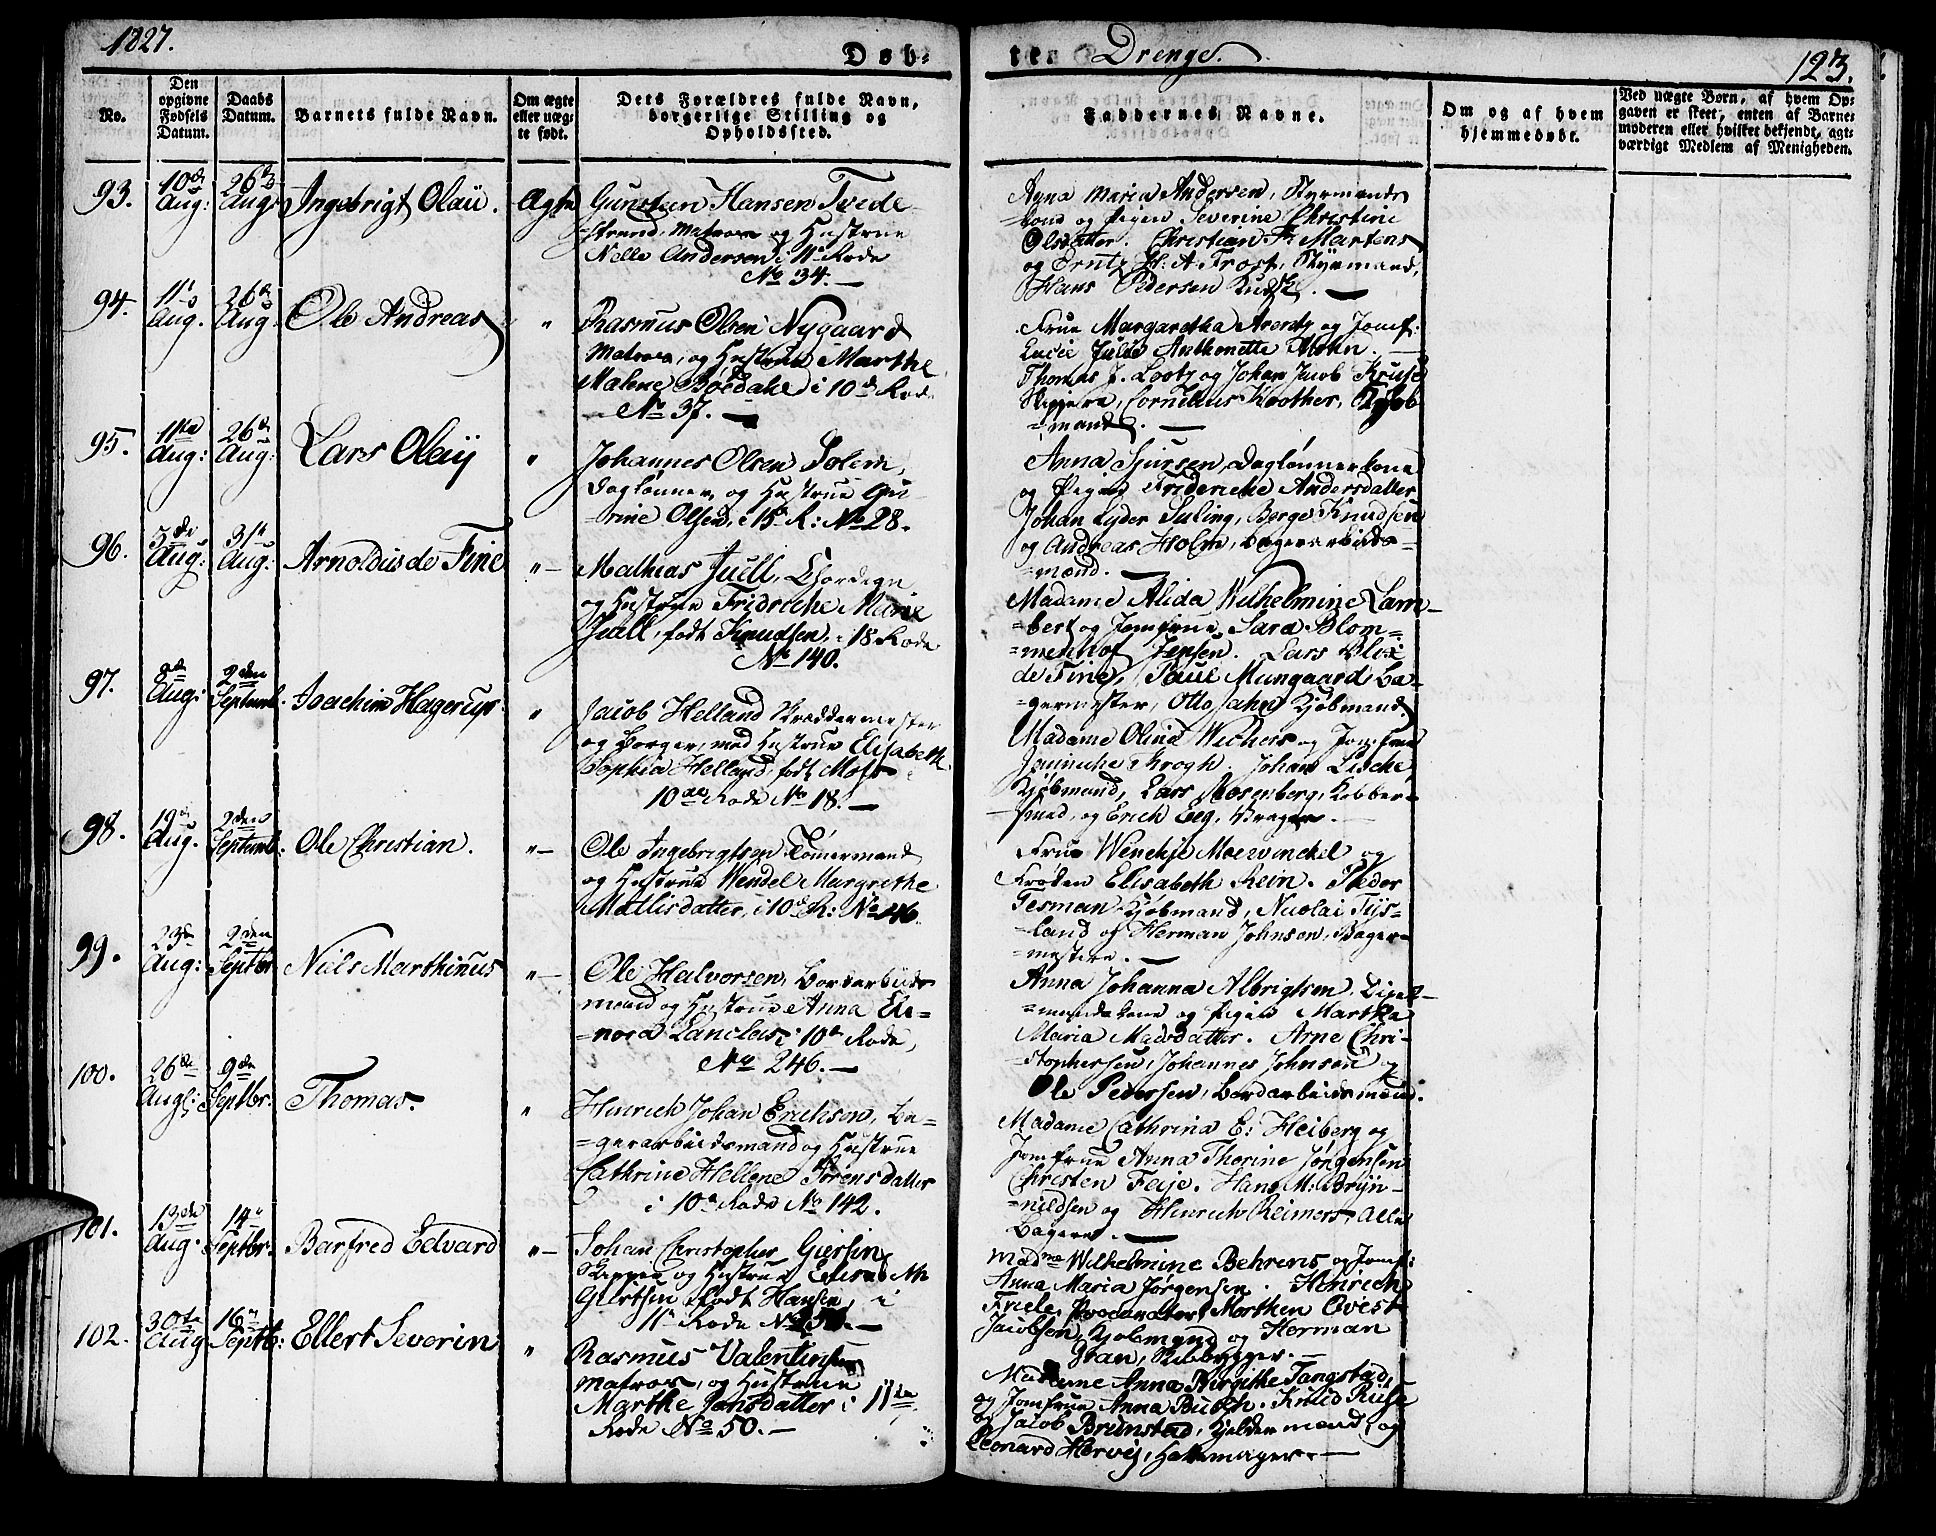 1827.
Døb-
te Drenge.
123.
No.
Den opgivne Fødsels Datum.
Daabs Datum.
Barnets fulde Navn.
Om ægte eller uægte født.
Dets Forældres fulde Navn, borgerlige Stilling og Opholdssted.
Faddernes Navne.
Om og af hvem hjemmedøbt.
Ved uægte Børn, af hvem Opgaven er skeet, enten af Barnemoderen eller hvilket bekjendt, agtværdigt Medlem af Menigheden.
93. 10de Aug: 26de Aug: Ingebrigt Olaii. Ægte
Gunsteen Hansen Tvede-
strand, Matros og Hustrue
Nelle Andersen i 11te Rode
No 34. —
Anna Maria Andersen, Styrmands
kone og Pigen Severine Christine
Olsdatter. Christian Fr: Martens
og Erntz H: A Frost, Styrmænd,
Hans Pedersen Kudsk. —
94. 11te Aug. 26de Aug: Ole Andreas "
Rasmus Olsen Nygaard
Matros, og Hustrue Marthe
Malene Boedahl i 10de Rode
No 37. —
Frue Margaretha Arentz og Jomf:
Lucie Julie Anthonette Mohn. —
Thomas J. Lootz og Johan Jacob Kruse
Skippere, Cornelius Koother, Kjøb
=mand. —
95. 11te Aug: 26de Aug: Lars Olay "
Johannes Olsen Solem,
Daglønner, og Hustrue Gu-
rine Olsen, i 15de R: No 28.
Anna Sjursen, Daglønnerkone
og Pigen Frideriche Andersdatter
Johan Lyder Suling, Børge Knudsen
og Andreas Holm, Bagerarbeids-
=mænd. —
96. 5de Aug: 31te Aug: Arnoldus de Fine "—
Mathias Juell, Chordegn
og Hustrue Fridriche Marie
Juell, født Knudsen, i 18 Rode
No 140.
Madame Alida Wilhelmine Lam-
=bert og Jomfrue Sara Blom-
=menhof Jepsen. Lars Blix
de Fine, Paul Mungaard, Ba-
=germester, Otto Jahn Kjøbmand.
97. 8de Aug: 2den Septemb. Joachim Hagerup "
Jacob Helland Skræddermester
og Borger, med Hustrue Elisabeth
Sophia Helland, født Mohr
10de Rode No 18. —
Madame Olina Wichers og Jomfrue
Janniche Krogh. Johan Lische,
Kjøbmand, Lars Rosenberg, Kobber-
smed, og Erich Eeg, Kræger. —
98. 19de Aug. 2den Septemb: Ole Christian. "—
Ole Ingebrigtsen Tømermand
og Hustrue Wendel Margrethe
Mathisdatter, i 10de R: No 246.
Frue Wenchje Moewinckel og
Frøken Elisabeth Rein. Peder
Tesman, Kjøbmand, Nicolai Tys-
=land og Herman Johnsen, Bager-
=mestere. —
99. 23de Aug: 2den Septbr Niels Marthinus "—
Ole Halvorsen, Bordarbeids
mand og Hustrue Anna Ele-
=nora Lanclas i 10de Rode,
No 246. —
Anna Johanna Albrigtsen,
=mandskone og Pigen Martha
Maria Madsdatter. Arne Chri-
=stophersen, Johannes Johnsen og
Ole Pedersen, Bordarbeidsmænd.
100. 26de Aug: 9de Septbr: Thomas. "
Hinrich Johan Erichsen, Ba-
=gerarbeidsmand og Hustrue
Cathrine Hellene Sørensdatter
i 10de Rode No 142.
Madame Cathrina E: Heiberg og
Jomfrue Anna Thorine Jørgensen
Christen Feije. Hans M: Bryn-
=nildsen og Hinrich Reimers, Alle
Bagere. —
101. 13de Aug: 14de Septbr: Barfred Edvard "—
Johan Christopher Giersin,
Skipper og Hustrue Elisabeth
Giertsen, født Hansen, i
11te Rode No 250. —
Madme Wilhelmine Behrens og Jomf:
Anna Maria Jørgensen. Henrich
Friele, Procurator, Morthen Qvist
Jacobsen, Kjøbmand og Herman
Gran, Skibbygger. —
102. 30te Aug 16de Septb: Ellert Severin "
Rasmus Valentinsen
Matros, og Hustrue
Marthe Jansdatter i 11te
Rode No 50. —
Madame Anna Birgithe Tangstad,
og Jomfrue Anna Busch. Knud Ruse
Jacob Brunstad, Kjeldermænd og
Leonard Hervig, Hattemager. —